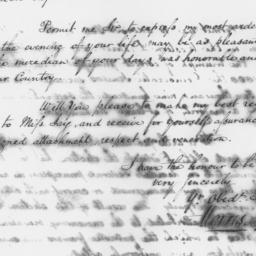 Permit me Sir to express my most arde
the evening of your life may be as pleasan
the meredian of your days was honorable an
r Country.
Will You please to make my best re
to Miss Jay, and receive for yourself assuranc
ned attachment respect and veneration.
I have the honour to be
very sincerely
Yr Obedt.